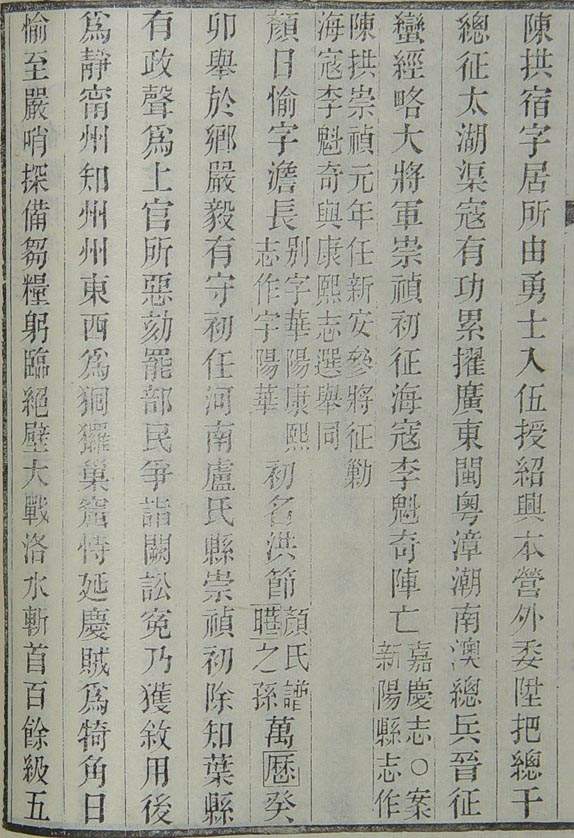 陳拱宿字居所由勇士入伍授紹興本營外委陞把總千
總征太湖渠寇有功累擢廣東閩粵漳潮南澳總兵晉征
蠻經略大將軍崇禎初征海寇李魁奇陣亡嘉慶志○案新陽縣志作
陳拱崇禎元年任新安參將征勦海寇李魁奇與康熙志選舉同
顏日愉字澹長別字華陽康熙志作字陽華初名洪節顏氏譜䎳之孫萬曆癸
卯舉於鄉嚴毅有守初任河南盧氏縣崇禎初除知葉縣
有政聲爲上官所惡劾罷部民爭詣闕訟寃乃獲敘用後
爲靜甯州知州州東西爲狪玀巢窟恃延慶賊爲犄角日
愉至嚴哨探備芻糧躬臨絕壁大戰洛水斬首百餘級五